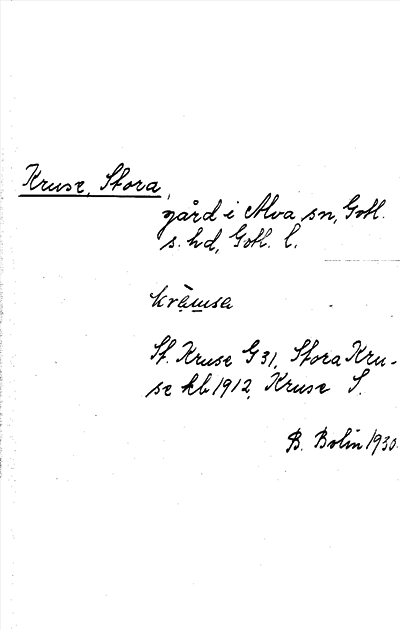 Kruse, Stora,
gård i Alva sn, Gotl.
s. hd, Gotl. l.
St. Kruse G 31, Stora Kru-
se kb 1912, Kruse S.
B. Bolin 1930.